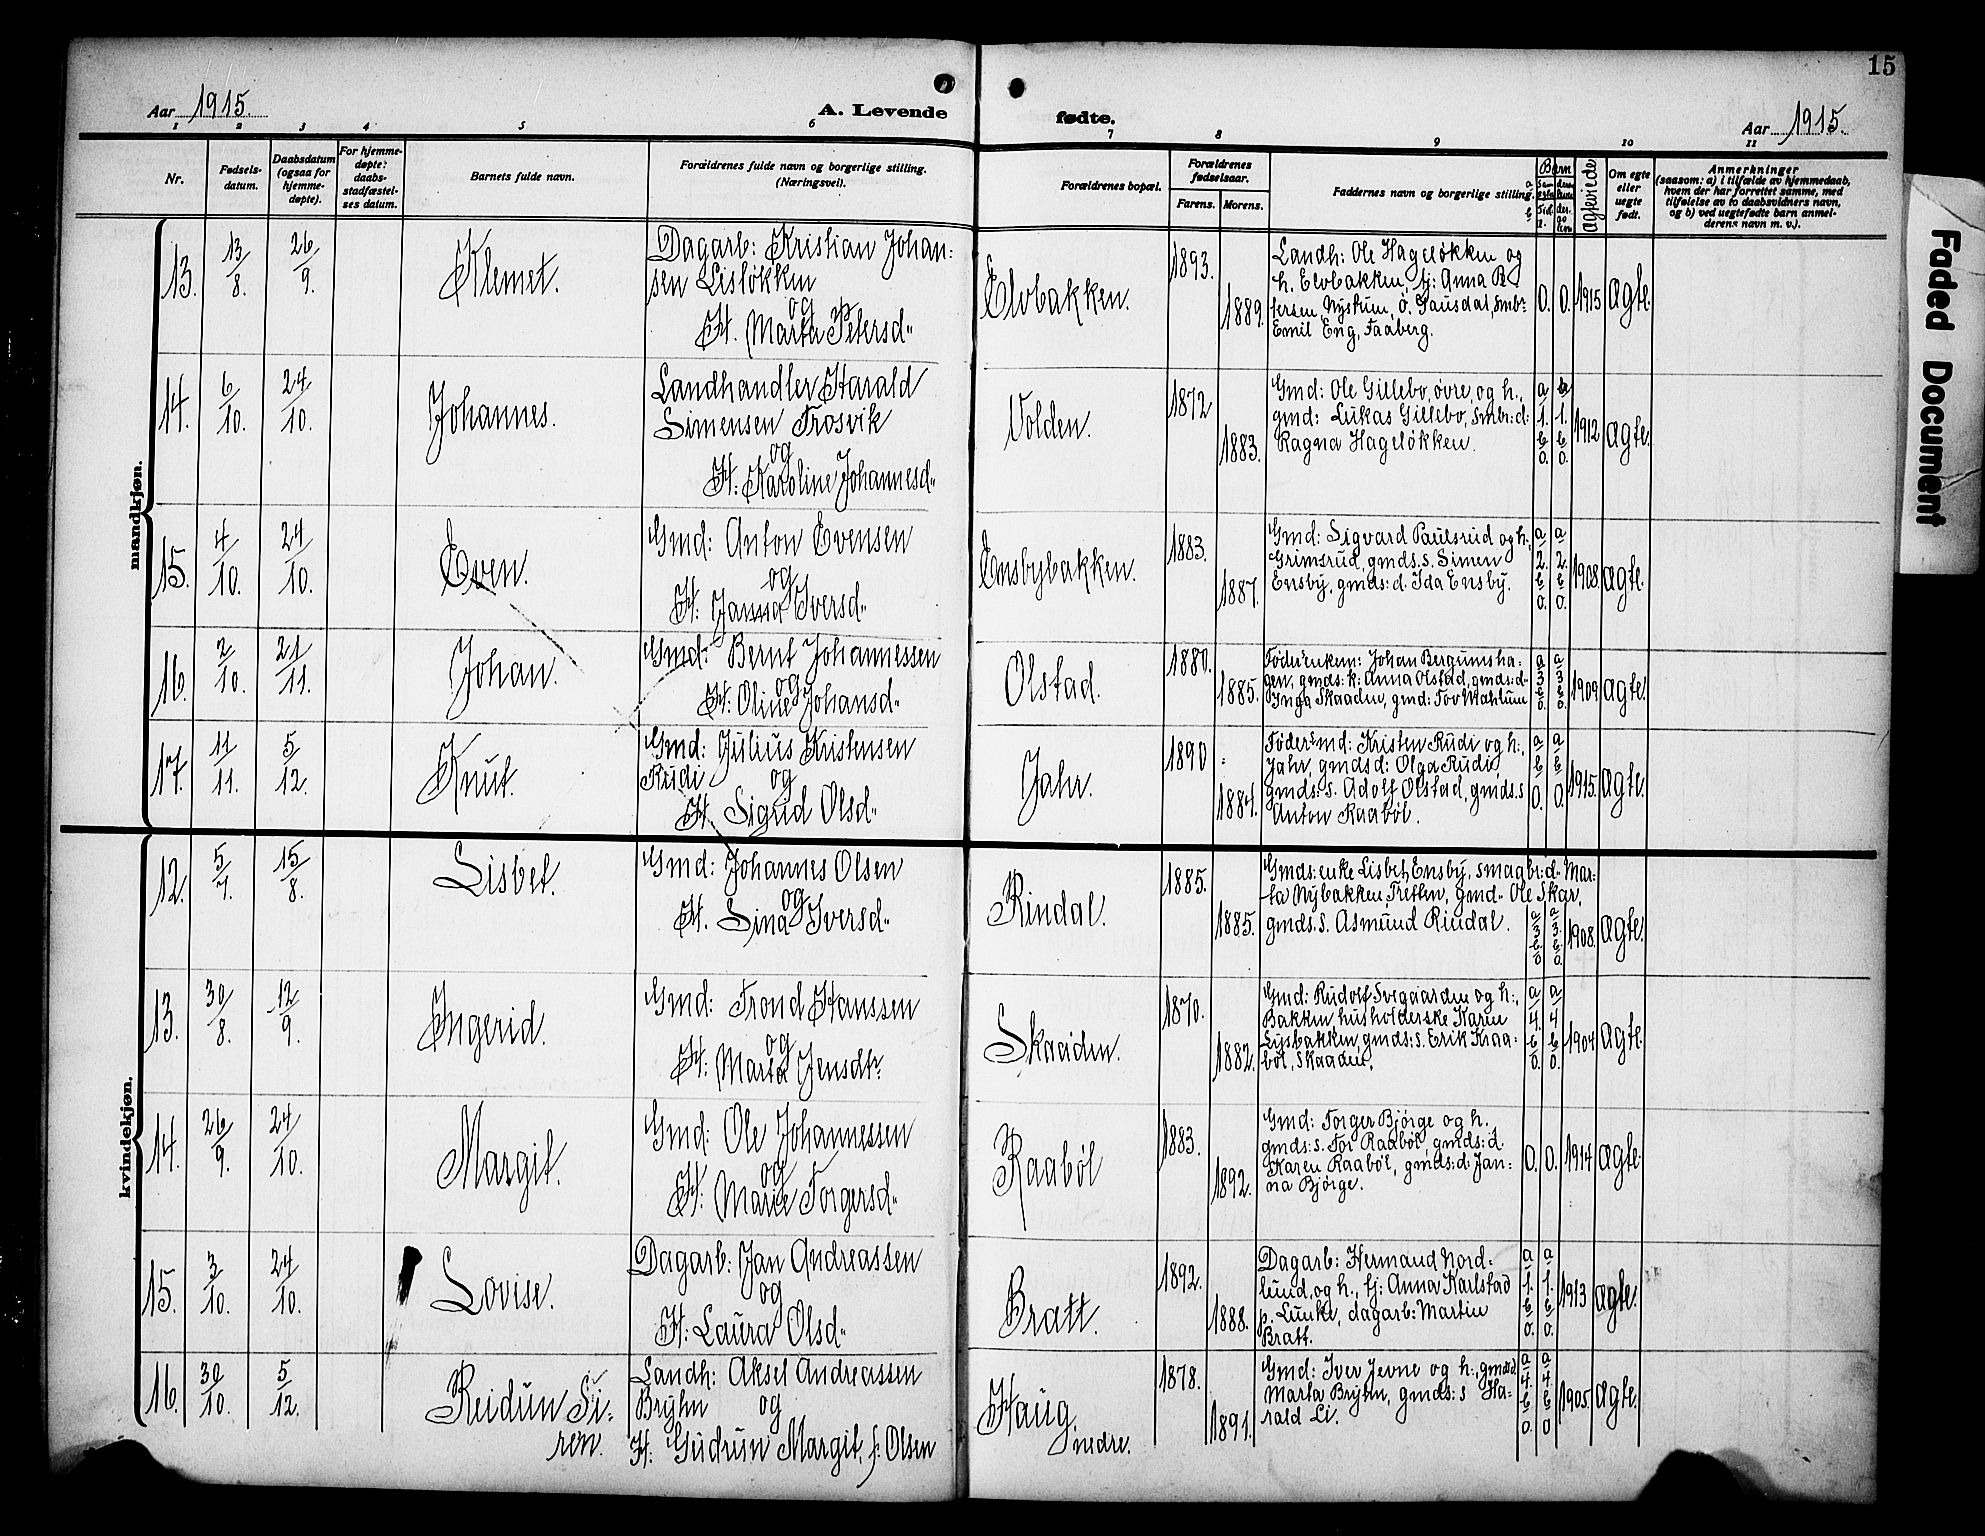 15
Aar 1915.
A. Levende
fødte.
Aar 1915.
1 2 3 4 5 6 7 8 9 10 11
Nr.
Fødsels-
datum.
Daabsdatum
(ogsaa for
hjemme-
døpte).
For hjemme-
døpte:
daabs-
stadfæstel-
ses datum.
Barnets fulde navn.
Forældrenes fulde navn og borgerlige stilling.
(Næringsvei).
Forældrenes bopæl.
Forældrenes
fødselsaar.
Farens. Morens.
Faddernes navn og borgerlige stilling.
Børn
Ægteviede
Om egte
eller
uegte
født.
Anmerkninger
(saasom: a) i tilfælde av hjemmedaab,
hvem der har forrettet samme, med
tilføielse av to daabsvidners navn,
og b) ved uegtefødte barn anmel-
derens navn m. v.).
Faded Document
mandkjøn.
13. 13/8. 26/9. Klemet.
Dagarb: Kristian Johan-
sen Lisløkken
og
H. Marta Petersd"
Elvbakken. 1893. 1889.
Landh: Ole Hageløkken og
h. Elvbakken, tj: Anna Pe-
tersen Nystuen, ö. Gausdal, smbr:
Emil Eng, Faaberg.
0. 0. 1915 ægte.
14. 6/10. 24/10. Johannes.
Landhandler Harald
Simensen Trosvik
og
H: Karoline Johannesd"
Volden. 1872 1883.
Gmd: Ole Gillebo, øvre, og h.,
gmd: Lukas Gillebo, smbr: d:
Ragna Hageløkken.
a 1. b 0. a 1. b 0. 1912 ægte.
15. 4/10. 24/10. Even.
Gmd: Anton Evensen
og
H: Janna Iversd"
Ensbybakken. 1883. 1887.
Gmd: Sigvard Paulsrud og h.,
Grimsrud, gmds. s. Simen
Ensby, gmds: d. Ida Ensby.
a 2. b 0. a 2. b 0. 1908. ægte.
16. 2/10. 21/11. Johan.
Gmd: Bernt Johannessen
og
H: Oline Johansd"
Olstad. 1880. 1885.
Føderenkem: Johan Bergumsha-
gen, gmds: k: Anna Olstad, gmds: d.
Inga Skaaden, gmd: Tov Mæhlum
a 3 b 0. a 3 b 0. 1909 ægte.
17. 11/11. 5/12. Knut.
Gmd: Julius Kristensen
Rudi og
H. Sigrid Olsd"
Jahr. 1890 1884.
Føder md: Kristen Rudi og h.,
Jahr, gmds d: Olga Rudi,
gmds: s. Adolf Olstad, gmds. s
Anton Raabøl.
a b 0. a b 0. 1915. ægte.
kvindekjøn.
12. 5/7. 15/8. Lisbet.
Gmd: Johannes Olsen
og
H. Lina Iversd"
Rindal. 1885. 1885.
Gmds: enke Lisbet Ensby, smaabr: d. Mar-
ta Nybakken, Tretten, gmd" Ole Skar,
gmds. s. Asmund Rindal.
a 3 b 0 a 3 b 0. 1908. ægte.
13. 30/8. 12/9. Ingerid.
Gmd: Trond Hanssen
og
H: Marta Jensdtr.
Skaaden. 1870. 1882.
Gmd: Rudolf Svegaarden og h.,
Bakken, husholderske Karen
Lysbakken, gmds: s. Erik Kraa-
bøl, Skaaden.
a 4. b 0. a 4 b 0. 1904 ægte.
14. 26/9. 24/10. Margit.
Gmd: Ole Johannessen
og
H: Marie Torgersd"
Raabøl 1883. 1892.
Gmd: Torger Bjørge og h.
gmds: s. Tor Raabøl, gmds: d.
Karen Raabøl, gmds: d: Jan-
na Bjørge.
0. 0. 1914 ægte.
15. 3/10. 24/10. Lovise.
Dagarb: Jan Andreassen
og
H: Laura Olsd"
Bratt. 1892. 1888.
Dagarb: Hermand Nord-
lund, og h., tj: Anna Karlstad
p. Lunke, dagarb: Martin
Bratt.
a 1. b 0. a 1. b 0. 1913 ægte.
16. 30/10. 5/12. Reidun Si-
ren.
Landh: Aksel Andreassen
Bryhn og
H. Gudrun Margit, f: Olsen
Haug,
nedre. 1878. 1891.
Gmd: Iver Jevne og h., gmds d
Marta Bryhn, gmds: s Ha-
rald Li.
a 4. b 0. a 4. b 0 1905. ægte.